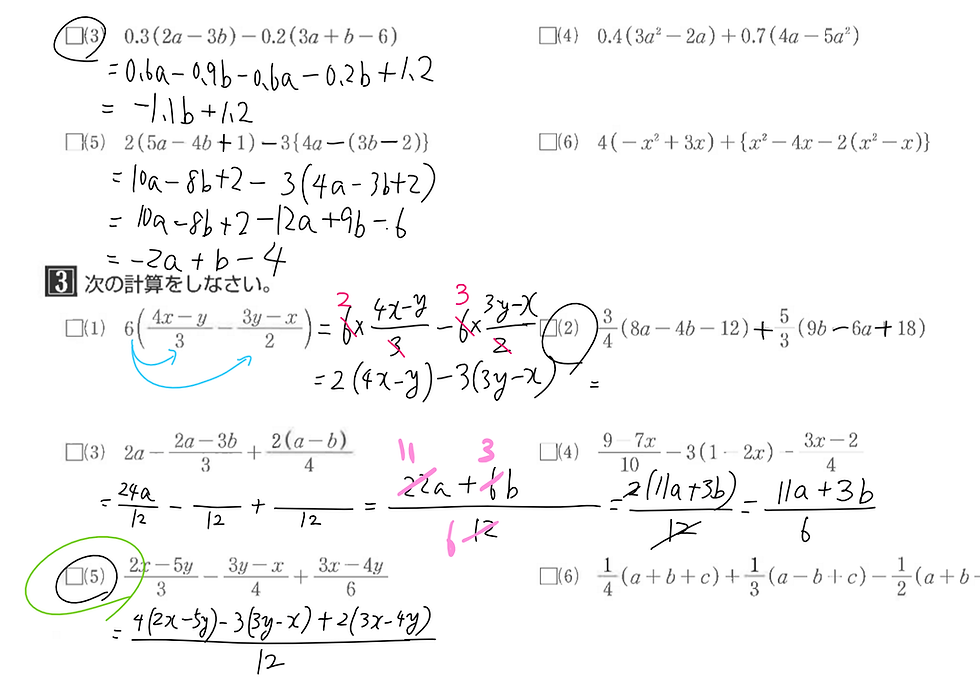 □(3) 0.3(2a－3b)－0.2(3a＋b－6)
=0.6a-0.9b-0.6a-0.2b+1.2
= -1.1b+1.2
□(4) 0.4(3a²－2a)＋0.7(4a－5a²)
□(5) 2(5a－4b＋1)－3{4a－(3b－2)}
=10a-8b+2-3(4a-3b+2)
=10a-8b+2-12a+9b-6
=-2a+b-4
□(6) 4(－x²＋3x)＋{x²－4x－2(x²－x)}
3 次の計算をしなさい。
□(1) 6((4x－y)/3－(3y－x)/2) = 6×(4x-y)/3 - 6×(3y-x)/2
2 3
=2(4x-y)-3(3y-x)
□(2) 3/4(8a－4b－12)＋5/3(9b－6a＋18)
=
□(3) 2a－(2a－3b)/3＋2(a－b)/4
= 24a/12 - /12 + /12 = (22a+6b)/12 = 2(11a+3b)/12 = (11a+3b)/6
11 3
6
□(4) (9－7x)/10－3(1－2x)－(3x－2)/4
□(5) (2x－5y)/3－(3y－x)/4＋(3x－4y)/6
= (4(2x-5y)-3(3y-x)+2(3x-4y))/12
□(6) 1/4(a＋b＋c)＋1/3(a－b＋c)－1/2(a＋b－